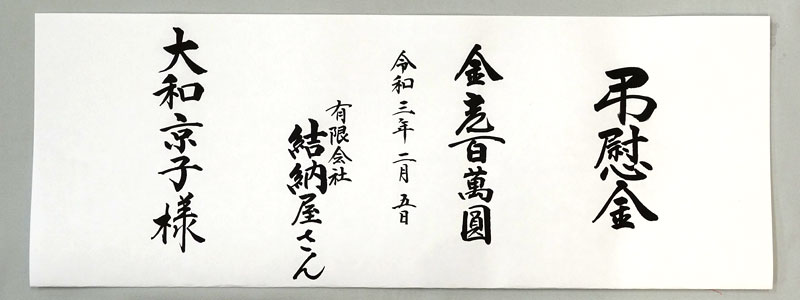 弔慰金
金壱百萬圓
令和三年二月五日
有限会社
結納屋さん
大和京子様